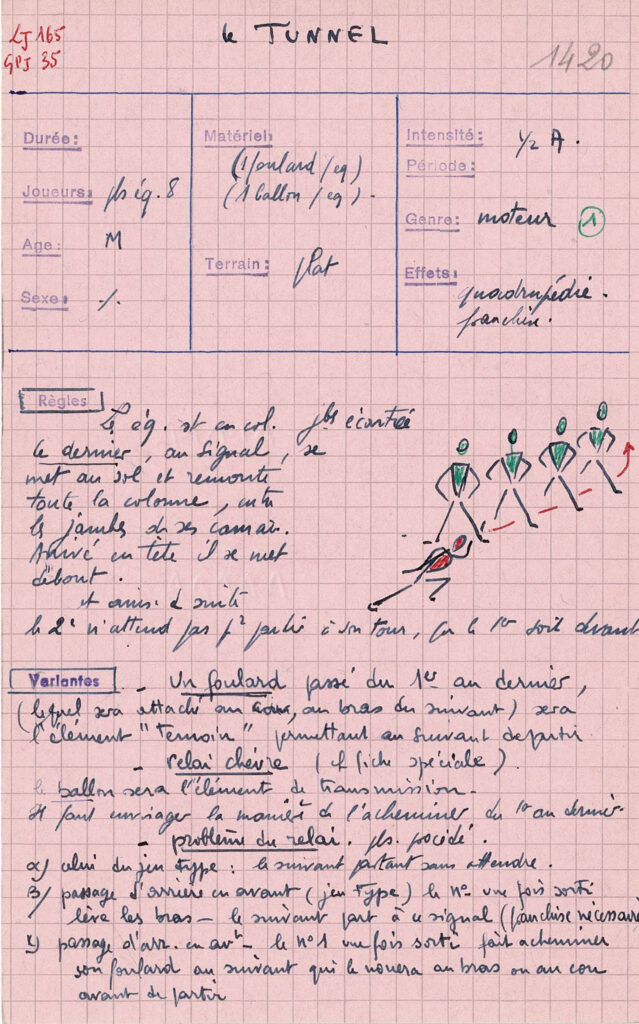 LJ 165
GPJ 35
le TUNNEL
1420
Durée:
Joueurs: pls éq. 8
Age: M
Sexe: /.
Matériel:
(1 foulard / eq)
(1 ballon / eq).
Terrain: plat
Intensité: 1/2 A.
Période:
Genre: moteur 1
Effets:
quadrupédie.
franchise.
Règles
L' éq. st en col. jbes écartées
le dernier, au signal, se
met au sol et remonte
toute la colonne, entre
les jambes de ses camar.
Arrivé en tête il se met
debout.
et ainsi d suite
le 2e n'attend pas pr partir à son tour, que le 1er soit devant
Variantes - Un foulard passé du 1er au dernier,
(lequel sera attaché au cou, au bras du suivant) sera
l'élément "Temoin" permettant au suivant de partir
- relai chèvre (cf fiche spéciale).
le ballon sera l'élément de transmission.
Il faut envisager la manière de l'acheminer du 1er au dernier
- problème du relai. pls. procédé.
α) celui du jeu type : le suivant partant sans attendre.
β) passage d'arrière en avant (jeu Type) le n° une fois sorti
lève les bras - le suivant part à ce signal (franchise nécessaire)
γ) passage d'arr. en avt - le n°1 une fois sorti fait acheminer
son foulard au suivant qui le nouera au bras ou au cou
avant de partir